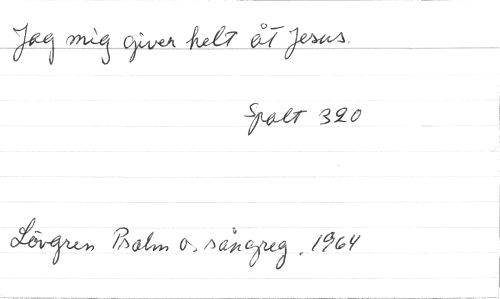 Jag mig giver helt åt Jesus.
Spalt 320
Lövgren Psalm o. sångreg. 1964